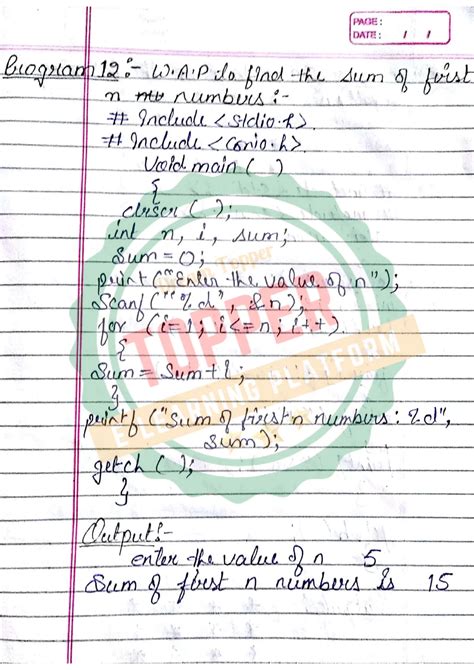 PAGE:
DATE: / /
Program 12:- W.A.P to find the sum of first
n numbers:-
# Include <stdio.h>.
# Include <conio.h>.
Void main ( )
{
clrscr ( );
int n, i, sum;
Sum = 0;
print ("Enter the value of n");
Scanf ("%d", &n);
for (i=1; i<=n; i++)
{
Sum = Sum + i;
}
printf ("Sum of first n numbers: %d",
Sum);
getch ( );
}
Output:-
enter the value of n 5
Sum of first n numbers is 15
Topper
TOPPER
E-LEARNING PLATFORM